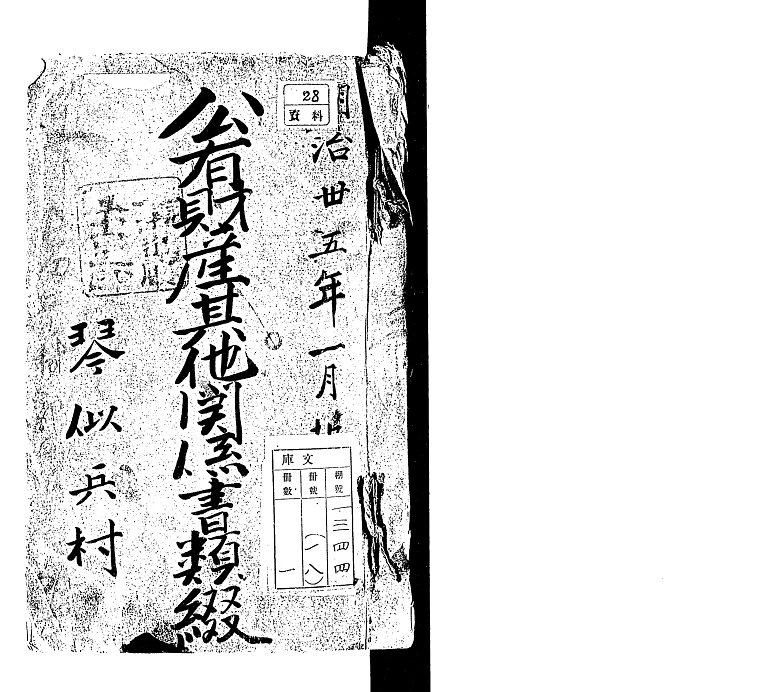 治卅五年一月
28
資料
公有財産其他関係書類綴
琴似兵村
文庫
棚號
冊號
冊數
一三四四
(一八)
一